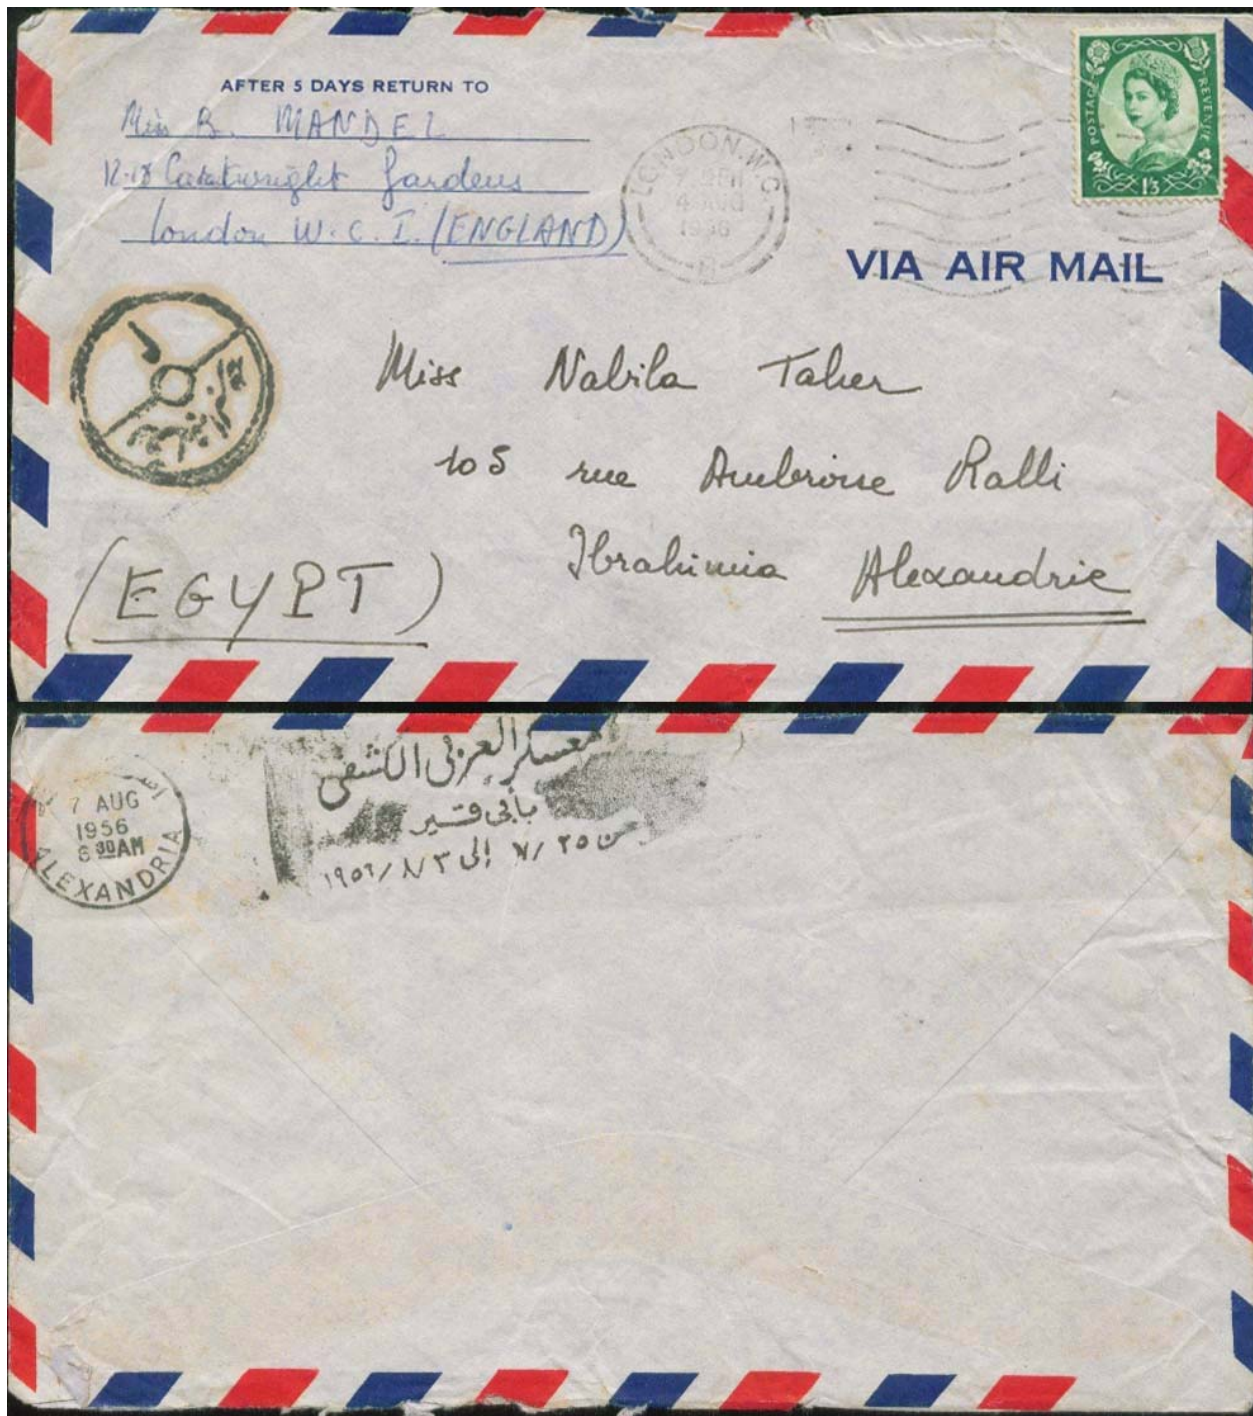 AFTER 5 DAYS RETURN TO
Miss B. MANDEL
12-18 Cartwright Gardens
London W.C.1. (ENGLAND)
LONDON. W.C.
4 AUG
1956
POSTAGE REVENUE
1/3
VIA AIR MAIL
Miss Nabila Taher
105 rue Ambroise Ralli
Ibrahimia Alexandrie
(EGYPT)
7 AUG
1956
6 30 AM
ALEXANDRIA
معسكر العربى الكشفى
بأبى قير
من ٢٥ /٧ إلى ٣ /٨/ ١٩٥٦